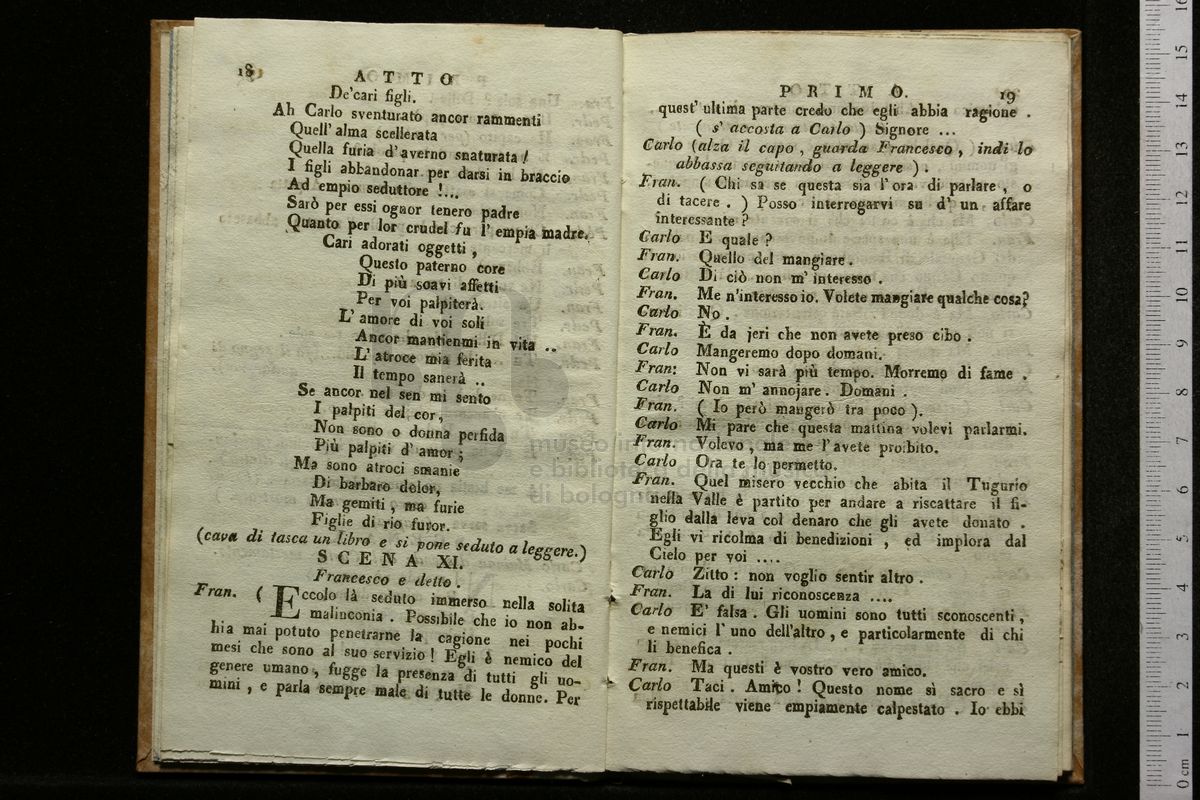 18
ATTO
De'cari figli.
Ah Carlo sventurato ancor rammenti
Quell' alma scellerata
Quella furia d'averno snaturata!
I figli abbandonar per darsi in braccio
Ad empio seduttore !...
Sarò per essi ognor tenero padre
Quanto per lor crudel fu l' empia madre.
Cari adorati oggetti,
Questo paterno core
Di più soavi affetti
Per voi palpiterà.
L' amore di voi soli
Ancor mantienmi in vita ..
L' atroce mia ferita
Il tempo sanerà ..
Se ancor nel sen mi sento
I palpiti del cor,
Non sono o donna perfida
Più palpiti d' amor;
Ma sono atroci smanie
Di barbaro dolor,
Ma gemiti, ma furie
Figlie di rio furor.
(cava di tasca un libro e si pone seduto a leggere.)
SCENA XI.
Francesco e detto.
Fran. ( Eccolo là seduto immerso nella solita
malinconia. Possibile che io non ab-
bia mai potuto penetrarne la cagione nei pochi
mesi che sono al suo servizio! Egli è nemico del
genere umano, fugge la presenza di tutti gli uo-
mini, e parla sempre male di tutte le donne. Per
PRIMO. 19
quest' ultima parte credo che egli abbia ragione.
( s' accosta a Carlo ) Signore ...
Carlo (alza il capo, guarda Francesco, indi lo
abbassa seguitando a leggere ).
Fran. ( Chi sa se questa sia l'ora di parlare, o
di tacere. ) Posso interrogarvi su d' un affare
interessante ?
Carlo E quale ?
Fran. Quello del mangiare.
Carlo Di ciò non m' interesso.
Fran. Me n'interesso io. Volete mangiare qualche cosa?
Carlo No.
Fran. È da jeri che non avete preso cibo.
Carlo Mangeremo dopo domani.
Fran: Non vi sarà più tempo. Morremo di fame.
Carlo Non m' annojare. Domani.
Fran. ( Io però mangerò tra poco ).
Carlo Mi pare che questa mattina volevi parlarmi.
Fran. Volevo, ma me l'avete proibito.
Carlo Ora te lo permetto.
Fran. Quel misero vecchio che abita il Tugurio
nella Valle è partito per andare a riscattare il fi-
glio dalla leva col denaro che gli avete donato.
Egli vi ricolma di benedizioni, ed implora dal
Cielo per voi ....
Carlo Zitto: non voglio sentir altro.
Fran. La di lui riconoscenza ....
Carlo E' falsa. Gli uomini sono tutti sconoscenti,
e nemici l' uno dell'altro, e particolarmente di chi
li benefica.
Fran. Ma questi è vostro vero amico.
Carlo Taci. Amico! Questo nome sì sacro e sì
rispettabile viene empiamente calpestato. Io ebbi